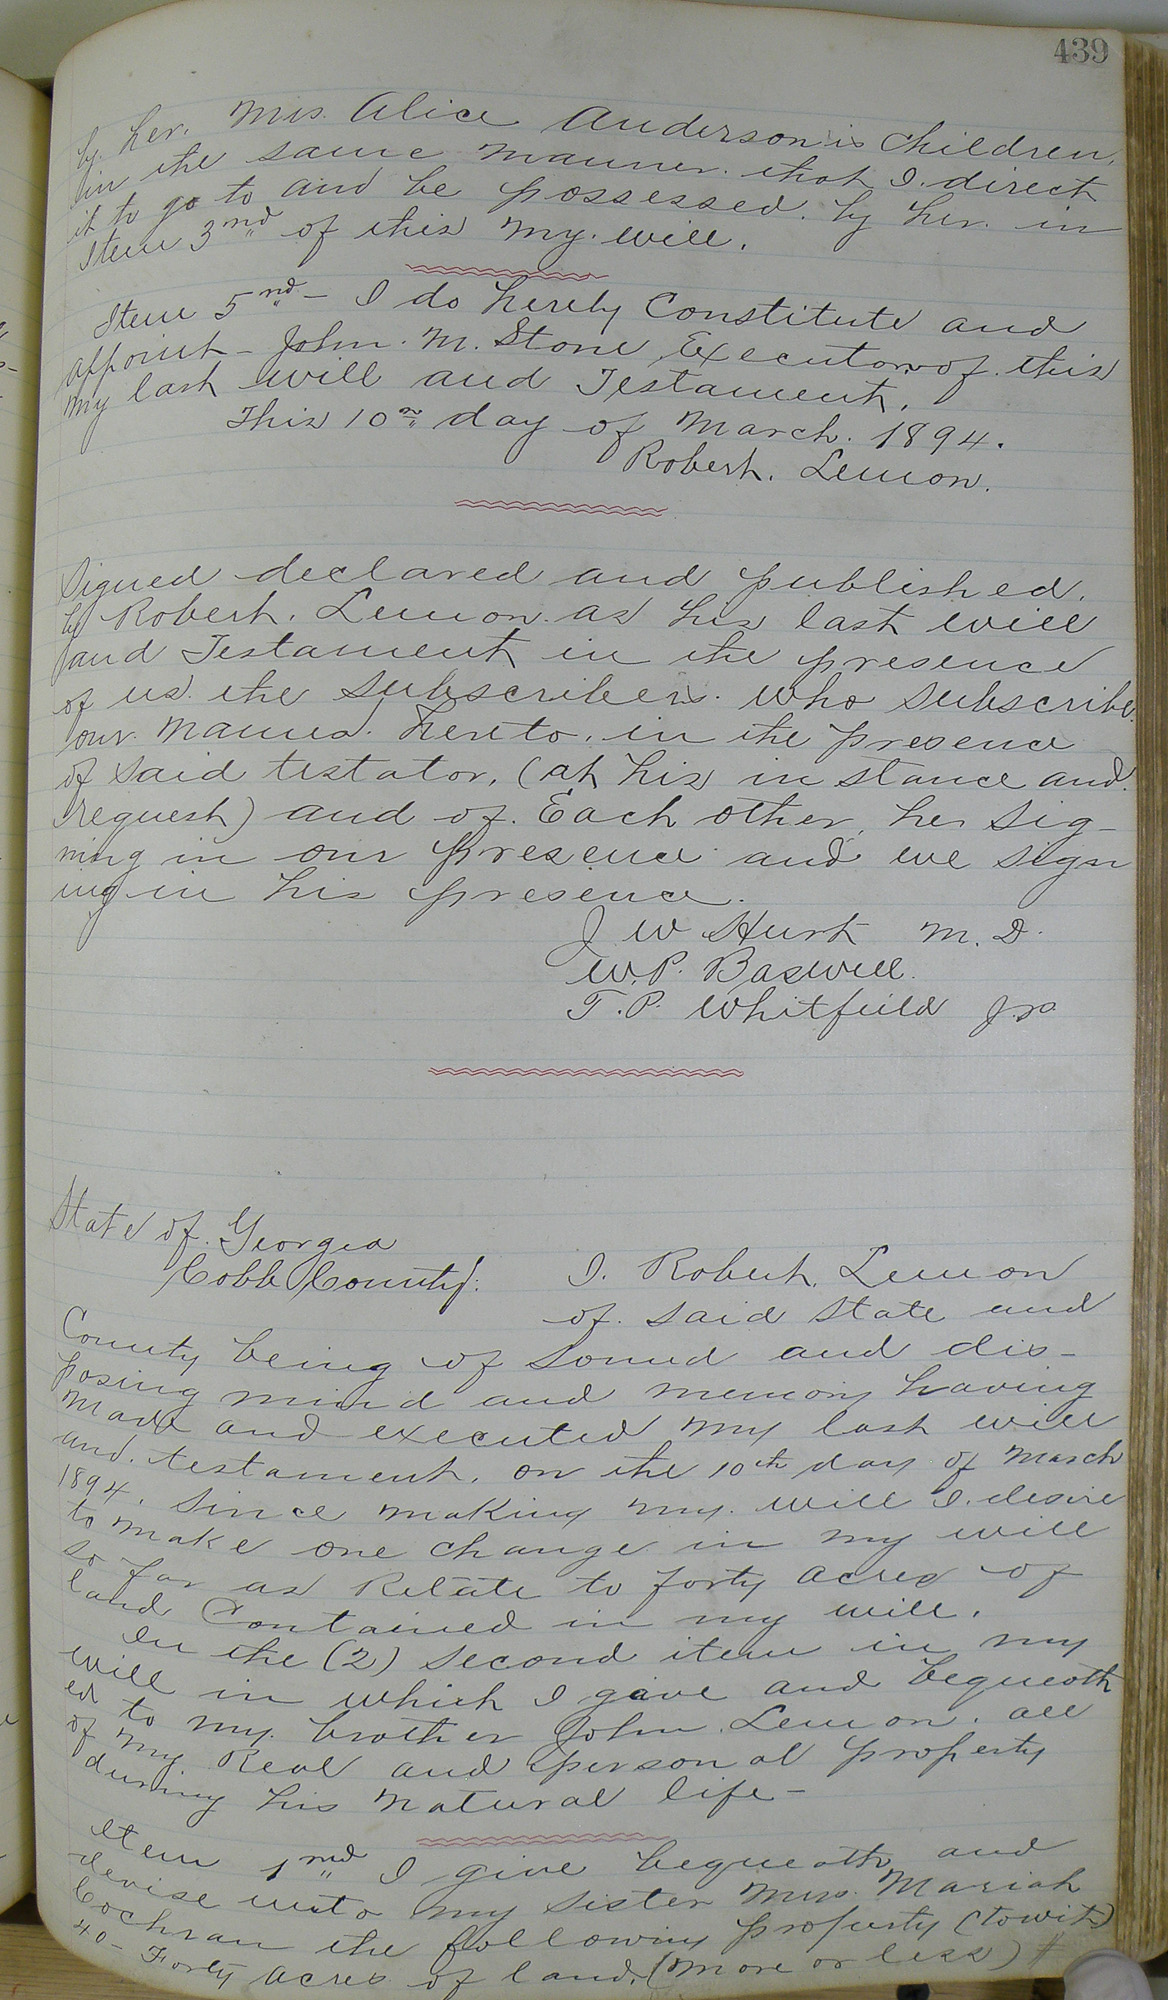 439
by her. Mrs. Alice Anderson's Children,
in the same manner. that I. direct
it to go to and be possessed. by her. in
Item 3nd of this my. will.
Item 5nd - I do hereby Constitute and
appoint - John. M. Stone Executor of. this
my last will and Testament.
This 10th day of March. 1894.
Robert. Lemon.
Signed declared and published.
by Robert. Lemon. as his last will
and Testament in the presence
of us. the Subscribers. who Subscribe.
our. names. hereto. in the presence
of said testator, (at his in stance and.
request) and of. Each other, he Sig-
ning in our presence and we sign
ing in his presence.
J W Hurt M. D.
W. P. Baswell.
T. P. Whitfield Jr.
State of. Georgia
Cobb County: I. Robert. Lemon
of. said State and
County being of Sound and dis-
posing mind and memory having
made and executed my last will
and. testament. on the 10th day of March
1894. Since making my. will I. desire
to make one change in my will
so far as Relate to forty acres of
land Contained in my will.
In the (2) Second item in my
will in which I gave and bequeath
ed to my. brother John. Lemon. all
of my Real and personal property
during his Natural life -
Item 1nd I give bequeath and
devise unto my Sister Mrs. Mariah
Cochran the following property (towit)
40 - Forty acres of land. (more or less)